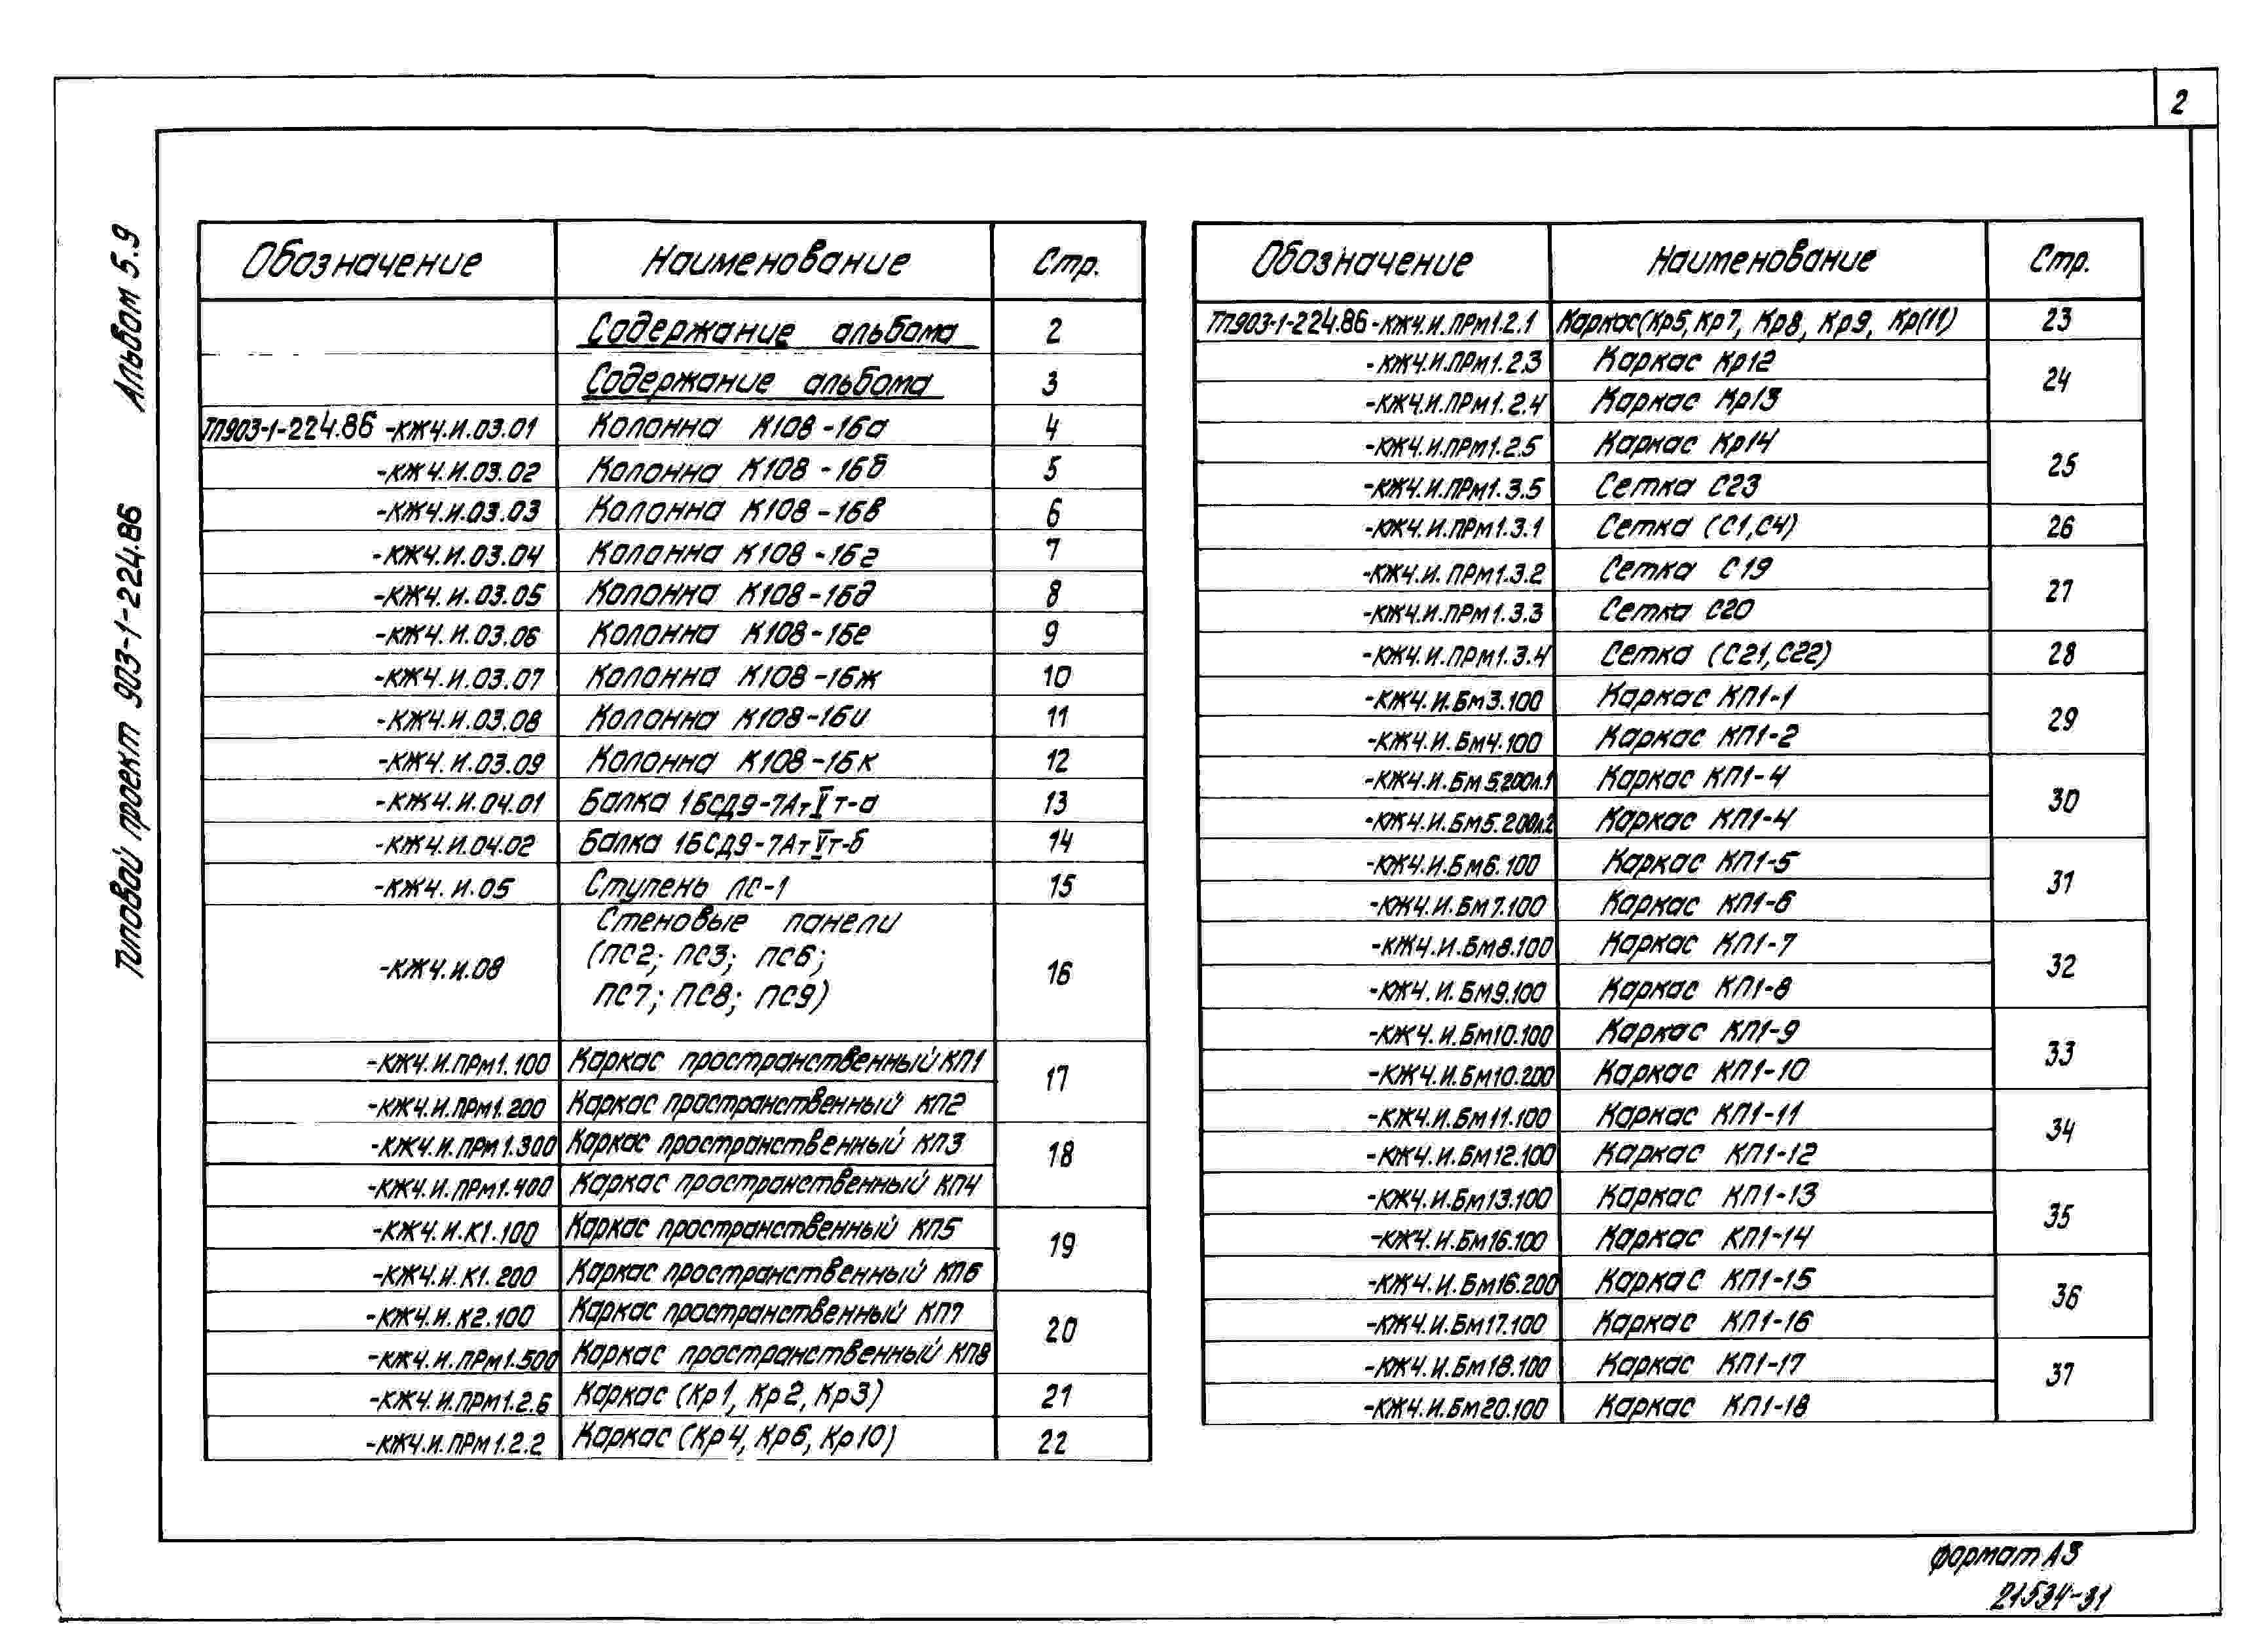 2
Альбом 5.9
Типовой проект 903-1-224.86
Обозначение Наименование Стр.
Содержание альбома 2
Содержание альбома 3
ТП903-1-224.86 -КЖ4.И.03.01 Колонна К108-16а 4
-КЖ4.И.03.02 Колонна К108-16б 5
-КЖ4.И.03.03 Колонна К108-16в 6
-КЖ4.И.03.04 Колонна К108-16г 7
-КЖ4.И.03.05 Колонна К108-16д 8
-КЖ4.И.03.06 Колонна К108-16е 9
-КЖ4.И.03.07 Колонна К108-16ж 10
-КЖ4.И.03.08 Колонна К108-16и 11
-КЖ4.И.03.09 Колонна К108-16к 12
-КЖ4.И.04.01 Балка 1БСД9-7АтVт-а 13
-КЖ4.И.04.02 Балка 1БСД9-7АтVт-б 14
-КЖ4.И.05 Ступень ЛС-1 15
Стеновые панели
-КЖ4.И.08 (ПС2; ПС3; ПС6; 16
ПС7; ПС8; ПС9)
-КЖ4.И.ПРм1.100 Каркас пространственный КП1 17
-КЖ4.И.ПРм1.200 Каркас пространственный КП2
-КЖ4.И.ПРм1.300 Каркас пространственный КП3 18
-КЖ4.И.ПРм1.400 Каркас пространственный КП4
-КЖ4.И.К1.100 Каркас пространственный КП5 19
-КЖ4.И.К1.200 Каркас пространственный КП6
-КЖ4.И.К2.100 Каркас пространственный КП7 20
-КЖ4.И.ПРм1.500 Каркас пространственный КП8
-КЖ4.И.ПРм1.2.6 Каркас (Кр1, Кр2, Кр3) 21
-КЖ4.И.ПРм1.2.2 Каркас (Кр4, Кр6, Кр10) 22
Обозначение Наименование Стр.
ТП903-1-224.86-КЖ4.И.ПРм1.2.1 Каркас(Кр5, Кр7, Кр8, Кр9, Кр(11) 23
-КЖ4.И.ПРм1.2.3 Каркас Кр12 24
-КЖ4.И.ПРм1.2.4 Каркас Кр13
-КЖ4.И.ПРм1.2.5 Каркас Кр14 25
-КЖ4.И.ПРм1.3.5 Сетка С23
-КЖ4.И.ПРм1.3.1 Сетка (С1,С4) 26
-КЖ4.И.ПРм1.3.2 Сетка С19 27
-КЖ4.И.ПРм1.3.3 Сетка С20
-КЖ4.И.ПРм1.3.4 Сетка (С21,С22) 28
-КЖ4.И.Бм3.100 Каркас КП1-1 29
-КЖ4.И.Бм4.100 Каркас КП1-2
-КЖ4.И.Бм5.200л.1 Каркас КП1-4 30
-КЖ4.И.Бм5.200л.2 Каркас КП1-4
-КЖ4.И.Бм6.100 Каркас КП1-5 31
-КЖ4.И.Бм7.100 Каркас КП1-6
-КЖ4.И.Бм8.100 Каркас КП1-7 32
-КЖ4.И.Бм9.100 Каркас КП1-8
-КЖ4.И.Бм10.100 Каркас КП1-9 33
-КЖ4.И.Бм10.200 Каркас КП1-10
-КЖ4.И.Бм11.100 Каркас КП1-11 34
-КЖ4.И.Бм12.100 Каркас КП1-12
-КЖ4.И.Бм13.100 Каркас КП1-13 35
-КЖ4.И.Бм16.100 Каркас КП1-14
-КЖ4.И.Бм16.200 Каркас КП1-15 36
-КЖ4.И.Бм17.100 Каркас КП1-16
-КЖ4.И.Бм18.100 Каркас КП1-17 37
-КЖ4.И.Бм20.100 Каркас КП1-18
Формат А3
21534-31